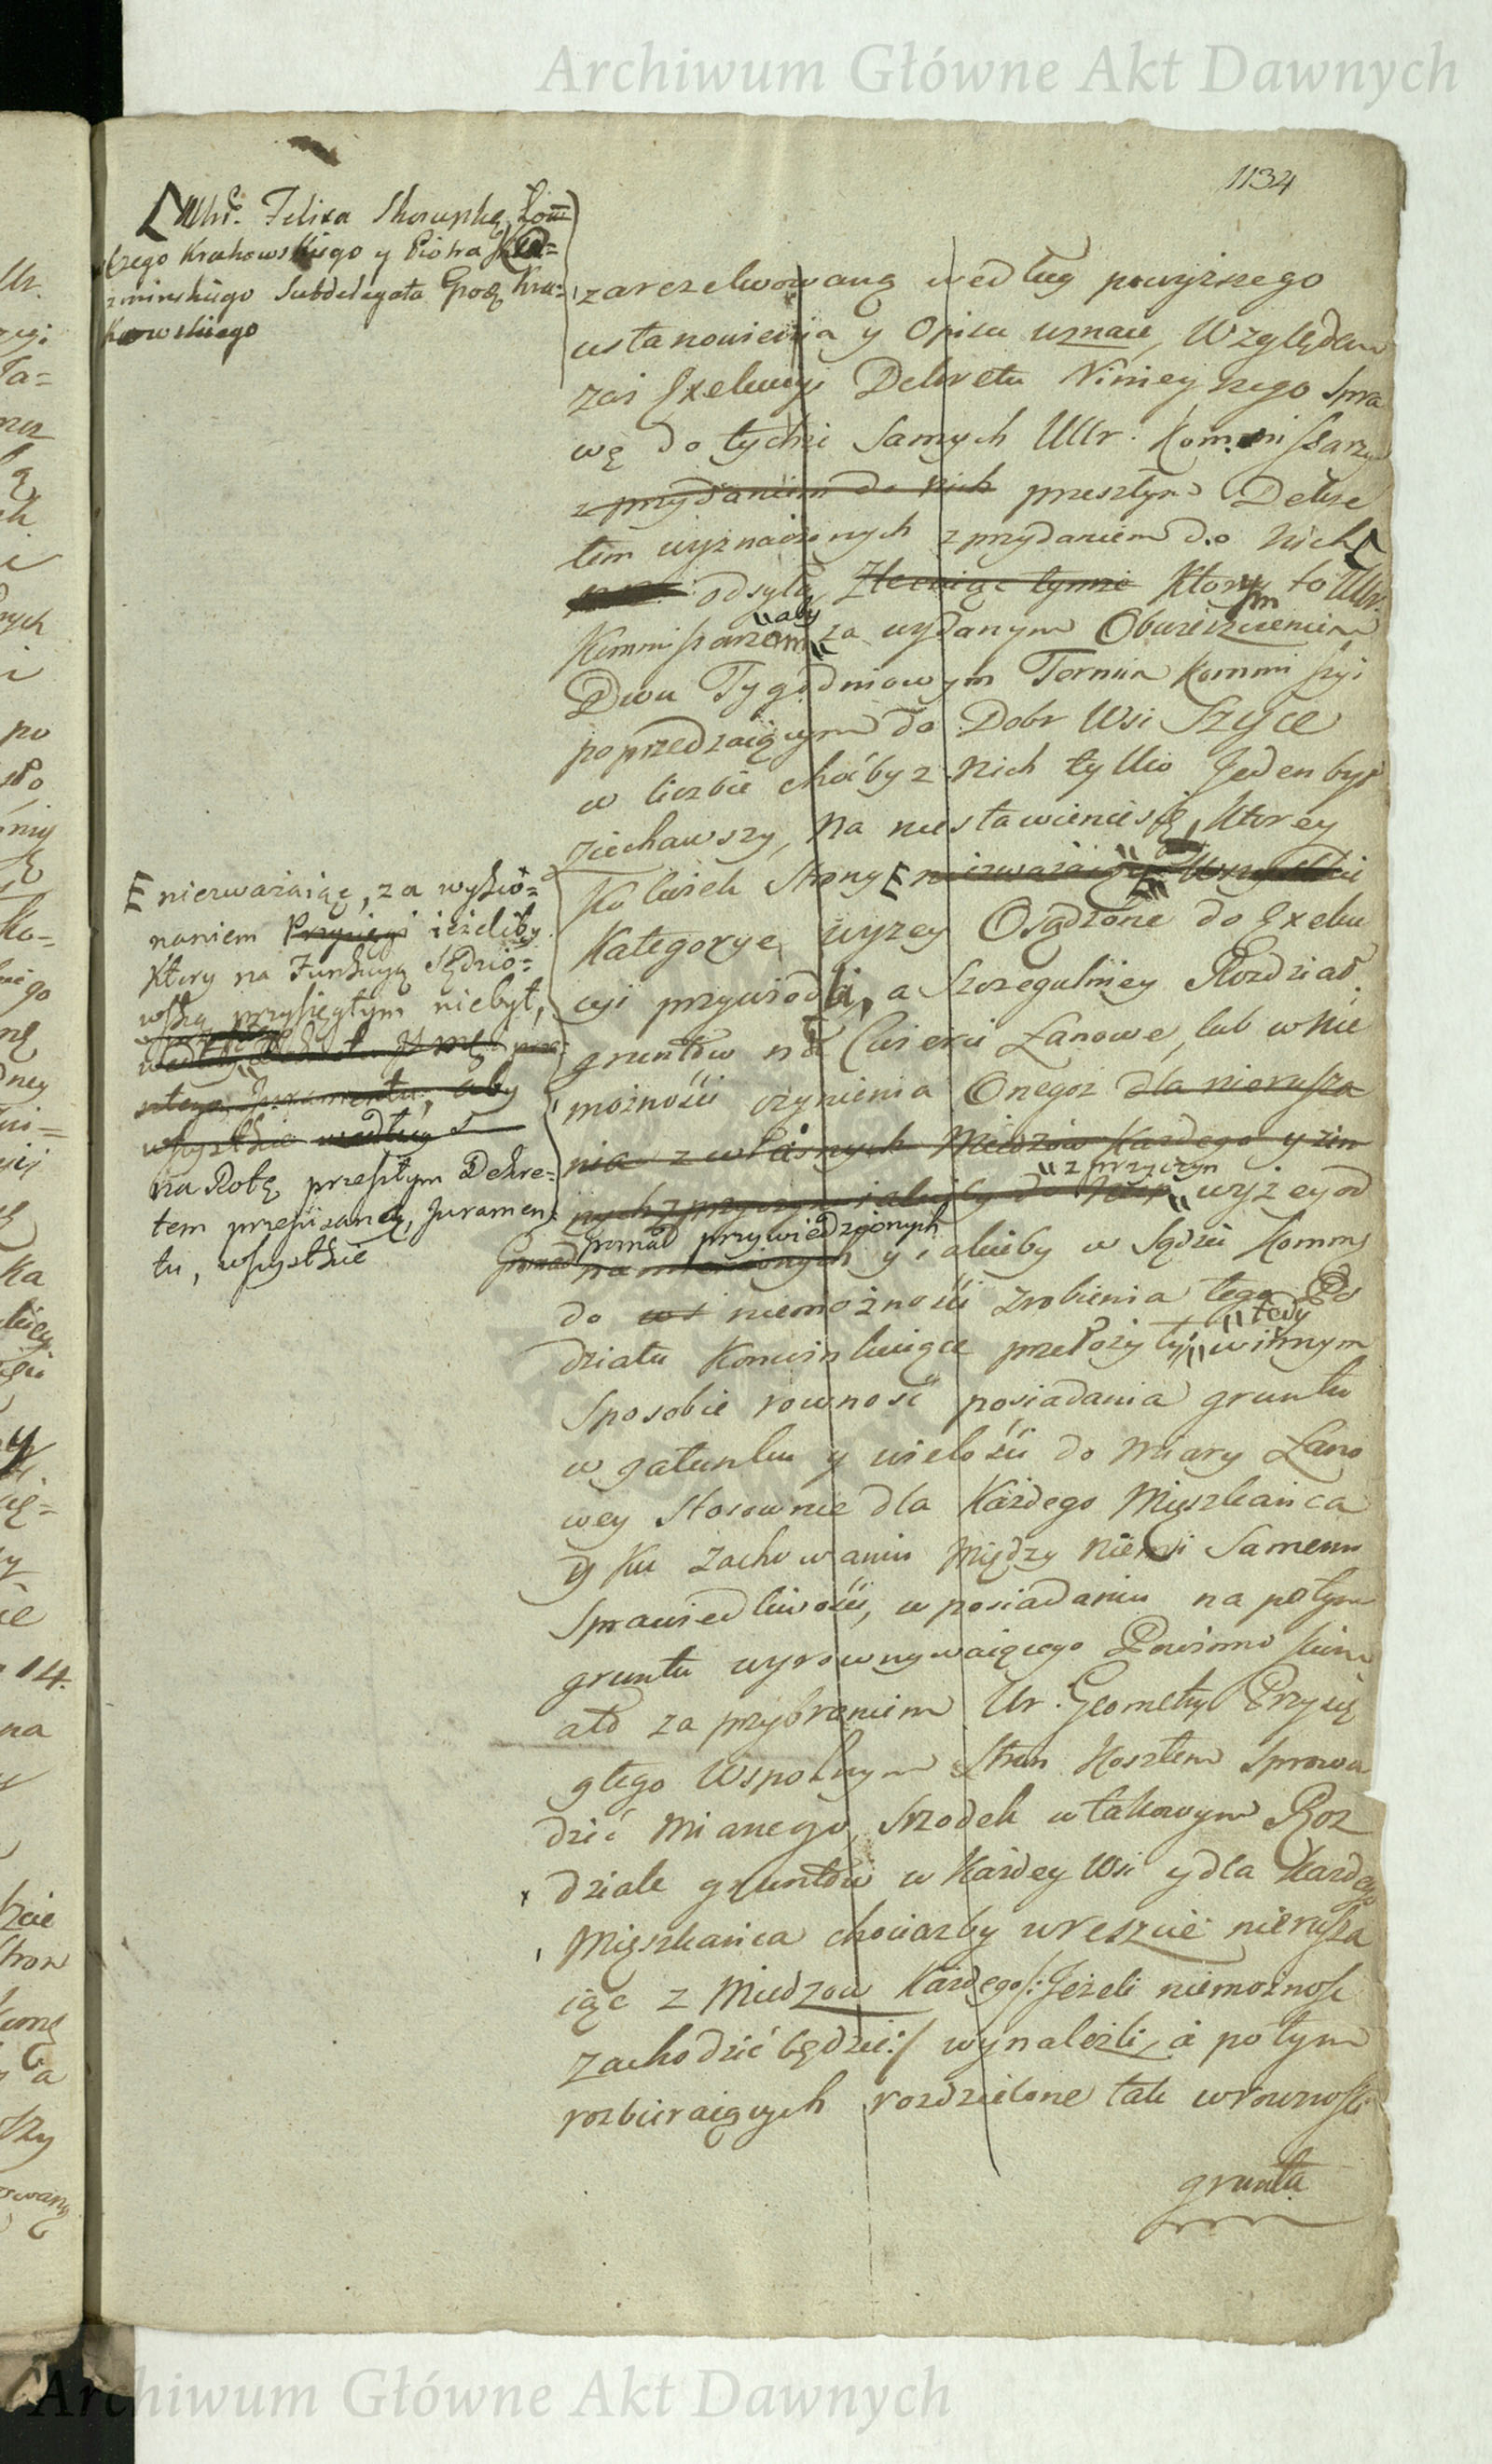 Archiwum Główne Akt Dawnych
1134
Felixa Skorupkę Łow=
czego Krakowskiego y Piotra
Subdelegata Grodz. Kra=
kowskiego
zarezelwowaną według powyższego
ustanowienia y Opisu uznaie, Względem
zaś Exekucyi Dekretu Ninieyszego Spra
wę do tychże Samych UUr. Kommissarzy
z przydaniem do nich przeszłym Dekre
tem wyznaczonych z przydaniem do nich
odsyła, Zlecaiąc tymże Którym to UUr.
aby
Kommissarzom za wydanym Obwieszczeniem
Dwu Tygodniowym Termin Kommissyi
poprzedzaiącym do Dobr Wsi Szyce
w liczbie choćby z Nich tylko Jeden był
ziechawszy, Na niestawienie się, Ktorey
Kolwiek Strony niezważaiąc Wszystkie
Kategorye wyzey Osądzone do Exeku
cyi przywiodli, a Szczegulniey Rozdział
gruntów na Cwierci Łanowe, lub w nie
możności czynienia Onegoż dla nierusza
nia z własnych Miedzow Każdego y in
nych z przyczyn iakieby do tego wyżey od
z przyczyn
ponad przywiedzionych
namienionych y iakieby w Sądzie Kommss
do niemożności zrobienia tego Po
działu Konwinkuiące przełożyły, w innym
tedy
Sposobie rowność posiadania gruntu
w gatunku y wielości do Miary Łano
wey Stosownie dla Każdego Mięszkańca
y Ku Zachowaniu Między Niemi Samemi
Sprawiedliwości, w posiadaniu na potym
gruntu wyrownywaiącego Powinnościom
ato za przybraniem Ur. Geometry Przysię
głego Wspolnym Stron Kosztem Sprowa
dzić Mianego, Srzodek w takowym Roz
dziale gruntów w Każdey Wsi y dla Każdego
Mięszkańca chociażby wreszcie nierusza
iąc z Miedzow Każdego /: Jeżeli niemożność
zachodzić będzie :/ wynaleźli, a potym
rozbieraiących rozdzielone tak w rowności
grunta
E niezważaiąc, za wykio=
naniem Przysięgi ieżeliby
Ktory na Funkcyą Sędzio=
wską przysięgłym niebył,
Juramentu, aby
wszystkie według
na Rotę przeszłym Dekre=
tem przepisaney, Juramen=
tu, wszystkie
Archiwum Główne Akt Dawnych